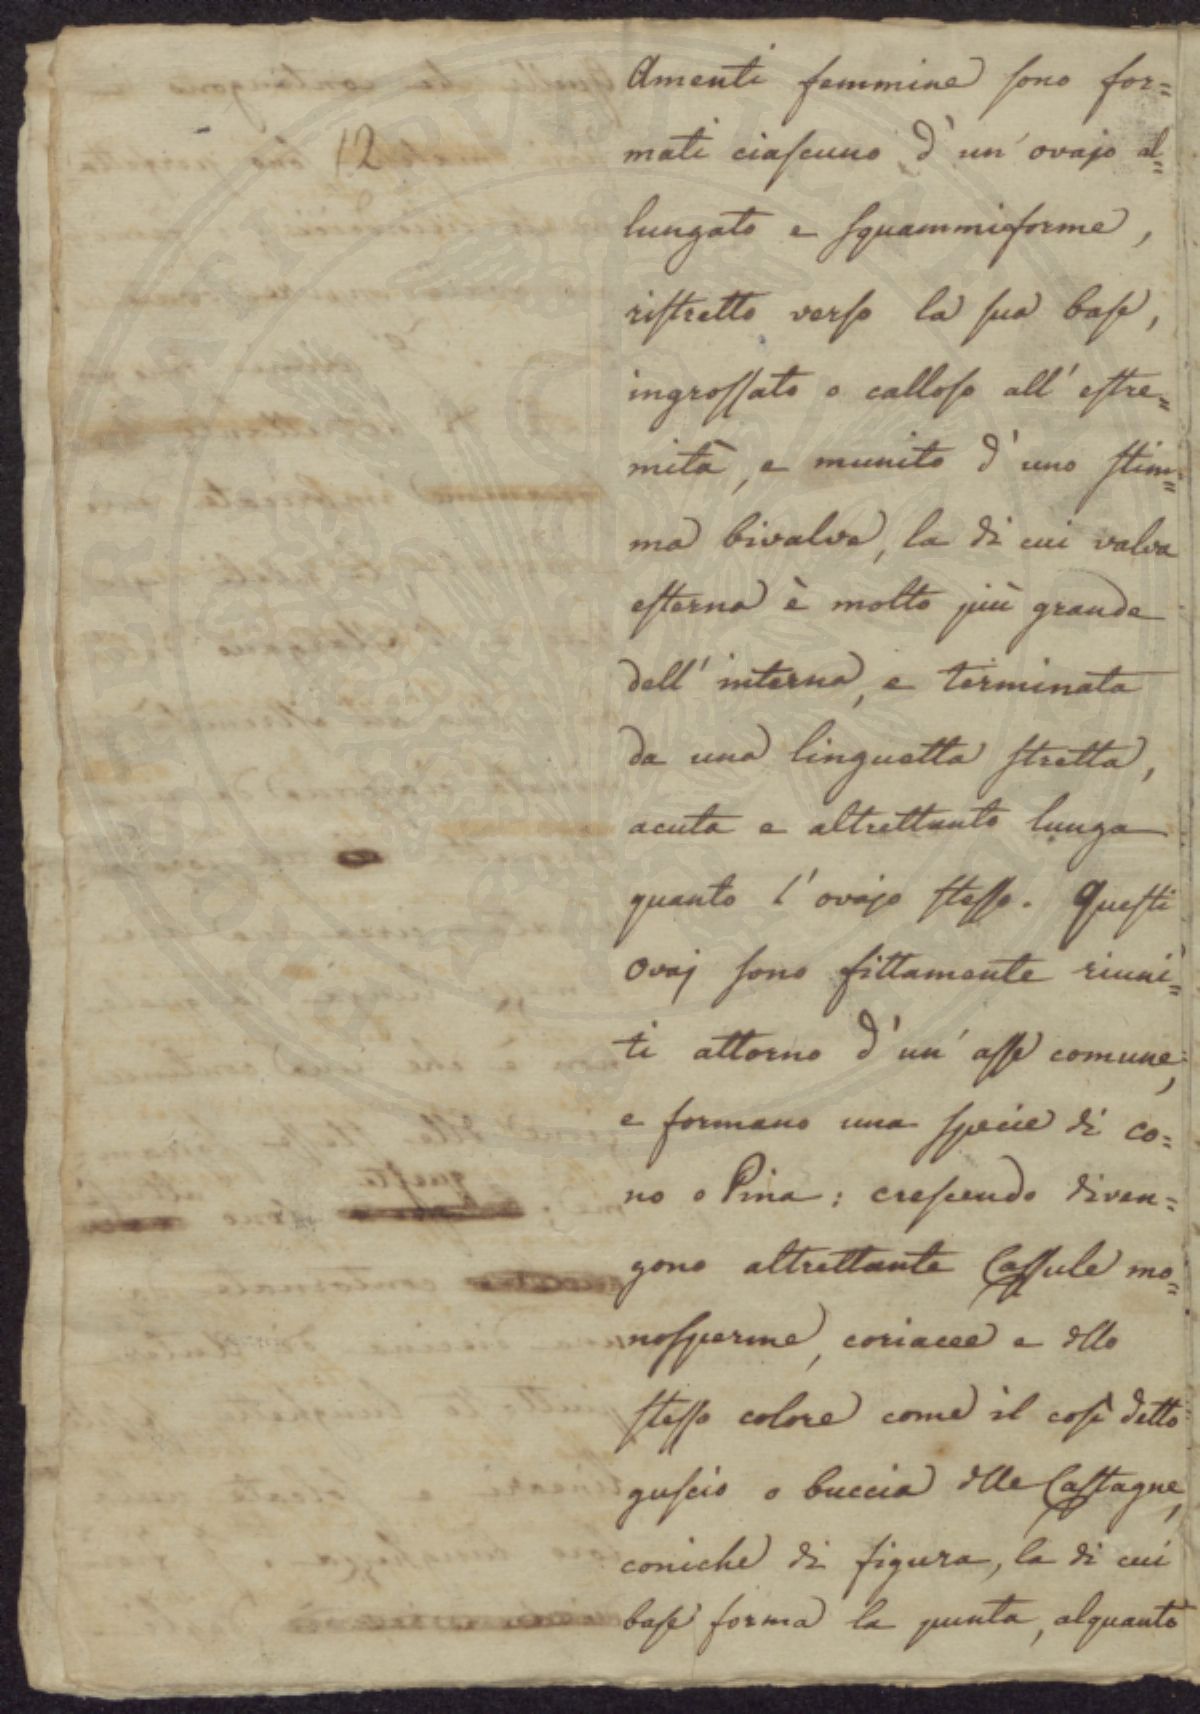 12
Amenti femmine sono for=
mati ciascuno d'un'ovajo al=
lungato e squammiforme,
ristretto verso la sua base,
ingrossato o calloso all'estre=
mità, e munito d'uno stim=
ma bivalve, la di cui valva
esterna è molto più grande
dell'interna, e terminata
da una linguetta stretta,
acuta e altrettanto lunga
quanto l'ovajo stesso. Questi
ovaj sono fittamente riuni=
ti attorno d'un'asse comune,
e formano una specie di co=
no o Pina: crescendo diven=
gono altrettante Cassule mo=
nosperme, coriacee e dllo
stesso colore come il così detto
guscio o buccia dlle Castagne,
coniche di figura, la di cui
base forma la punta, alquanto